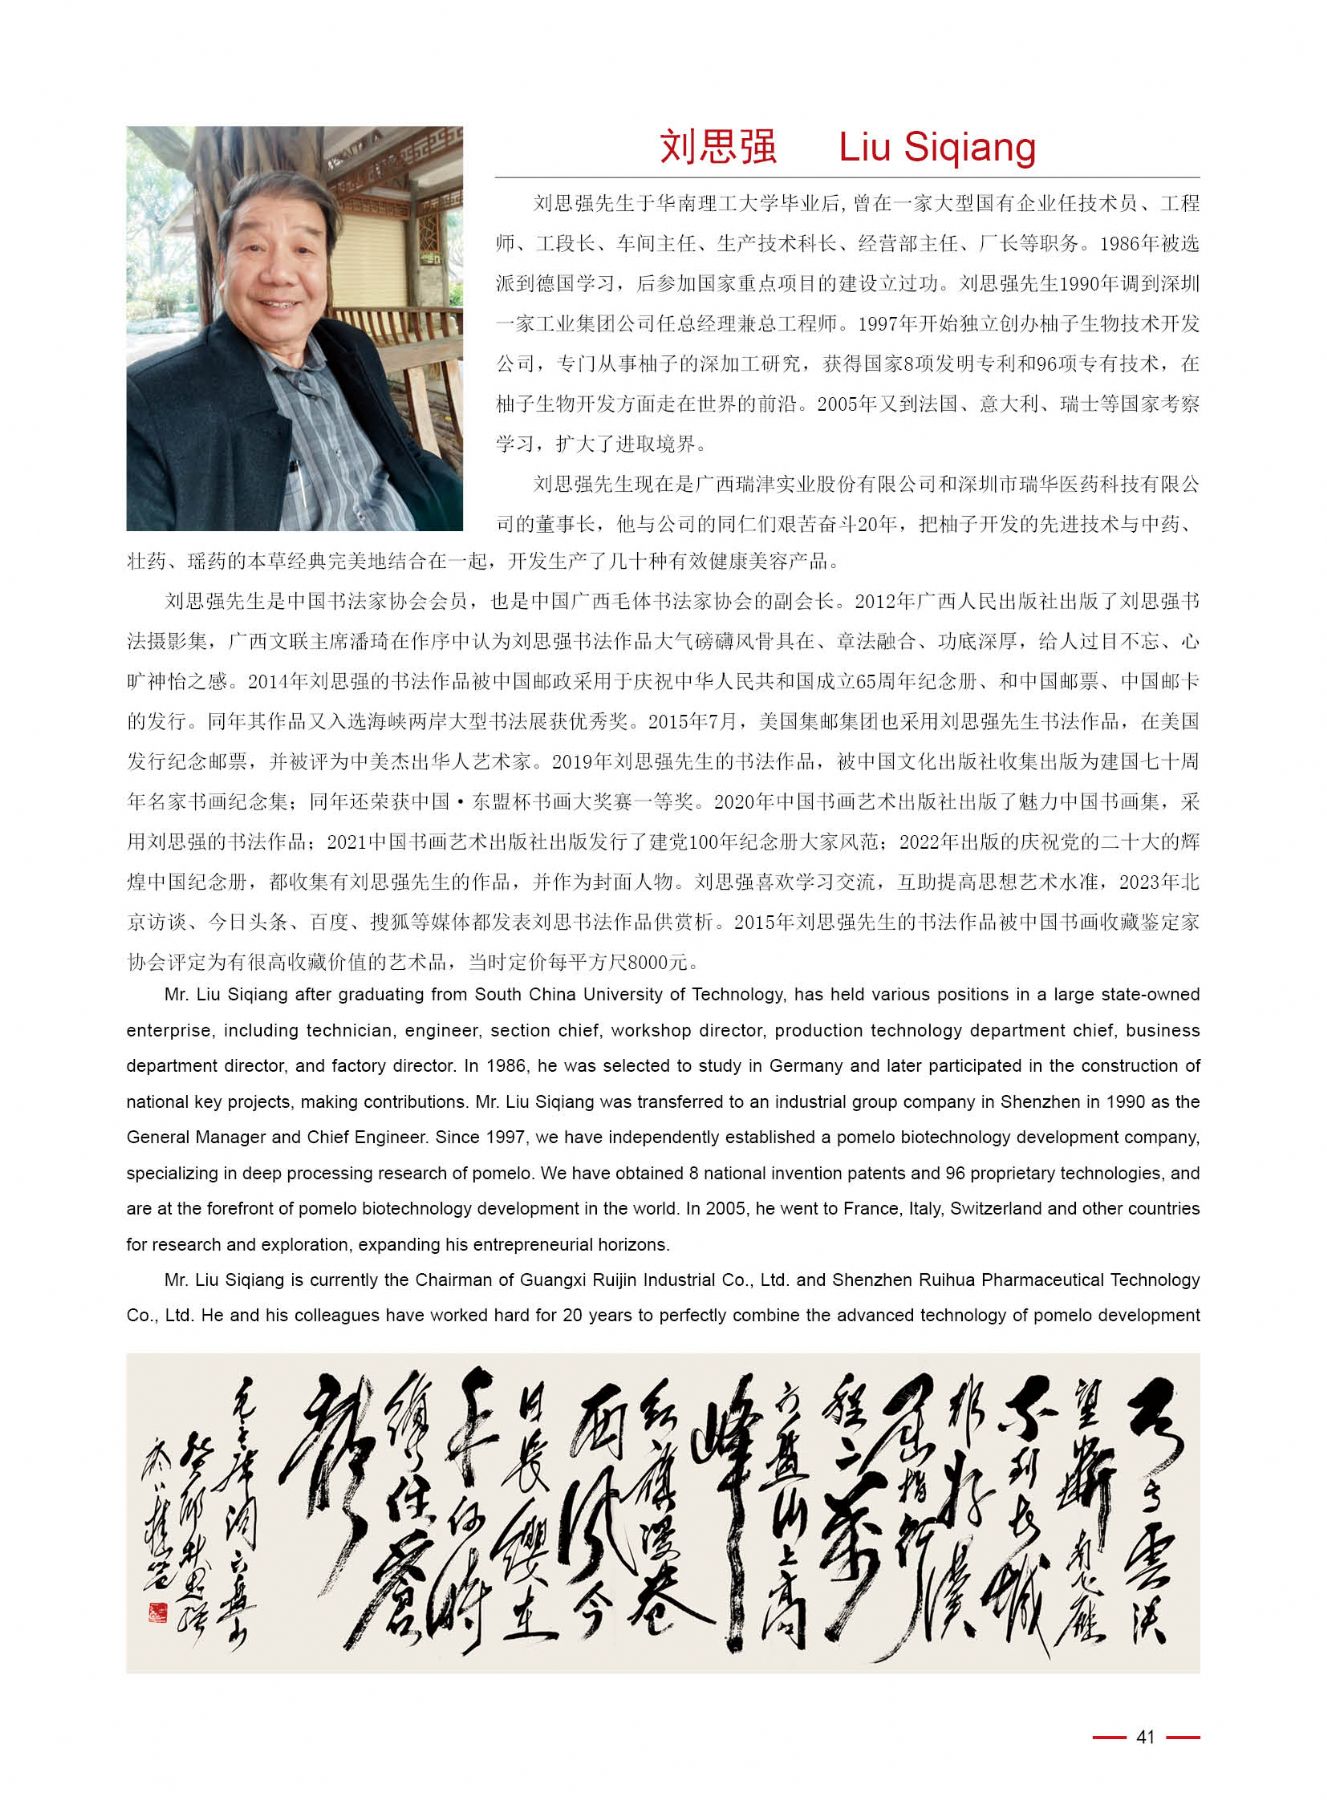 刘思强 Liu Siqiang
刘思强先生于华南理工大学毕业后,曾在一家大型国有企业任技术员、工程
师、工段长、车间主任、生产技术科长、经营部主任、厂长等职务。1986年被选
派到德国学习，后参加国家重点项目的建设立过功。刘思强先生1990年调到深圳
一家工业集团公司任总经理兼总工程师。1997年开始独立创办柚子生物技术开发
公司，专门从事柚子的深加工研究，获得国家8项发明专利和96项专有技术，在
柚子生物开发方面走在世界的前沿。2005年又到法国、意大利、瑞士等国家考察
学习，扩大了进取境界。
刘思强先生现在是广西瑞津实业股份有限公司和深圳市瑞华医药科技有限公
司的董事长，他与公司的同仁们艰苦奋斗20年，把柚子开发的先进技术与中药、
壮药、瑶药的本草经典完美地结合在一起，开发生产了几十种有效健康美容产品。
刘思强先生是中国书法家协会会员，也是中国广西毛体书法家协会的副会长。2012年广西人民出版社出版了刘思强书
法摄影集，广西文联主席潘琦在作序中认为刘思强书法作品大气磅礴风骨具在、章法融合、功底深厚，给人过目不忘、心
旷神怡之感。2014年刘思强的书法作品被中国邮政采用于庆祝中华人民共和国成立65周年纪念册、和中国邮票、中国邮卡
的发行。同年其作品又入选海峡两岸大型书法展获优秀奖。2015年7月，美国集邮集团也采用刘思强先生书法作品，在美国
发行纪念邮票，并被评为中美杰出华人艺术家。2019年刘思强先生的书法作品，被中国文化出版社收集出版为建国七十周
年名家书画纪念集；同年还荣获中国·东盟杯书画大奖赛一等奖。2020年中国书画艺术出版社出版了魅力中国书画集，采
用刘思强的书法作品；2021中国书画艺术出版社出版发行了建党100年纪念册大家风范；2022年出版的庆祝党的二十大的辉
煌中国纪念册，都收集有刘思强先生的作品，并作为封面人物。刘思强喜欢学习交流，互助提高思想艺术水准，2023年北
京访谈、今日头条、百度、搜狐等媒体都发表刘思书法作品供赏析。2015年刘思强先生的书法作品被中国书画收藏鉴定家
协会评定为有很高收藏价值的艺术品，当时定价每平方尺8000元。
Mr. Liu Siqiang after graduating from South China University of Technology, has held various positions in a large state-owned
enterprise, including technician, engineer, section chief, workshop director, production technology department chief, business
department director, and factory director. In 1986, he was selected to study in Germany and later participated in the construction of
national key projects, making contributions. Mr. Liu Siqiang was transferred to an industrial group company in Shenzhen in 1990 as the
General Manager and Chief Engineer. Since 1997, we have independently established a pomelo biotechnology development company,
specializing in deep processing research of pomelo. We have obtained 8 national invention patents and 96 proprietary technologies, and
are at the forefront of pomelo biotechnology development in the world. In 2005, he went to France, Italy, Switzerland and other countries
for research and exploration, expanding his entrepreneurial horizons.
Mr. Liu Siqiang is currently the Chairman of Guangxi Ruijin Industrial Co., Ltd. and Shenzhen Ruihua Pharmaceutical Technology
Co., Ltd. He and his colleagues have worked hard for 20 years to perfectly combine the advanced technology of pomelo development
天高雲淡
望斷南飛雁
不到長城
非好漢
屈指行
程二萬
六盤山上高
峰
紅旗漫卷
西風今
日長纓在
手何時
縛住蒼
龍
41